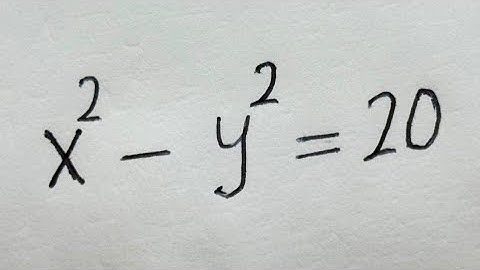 x² - y² = 20